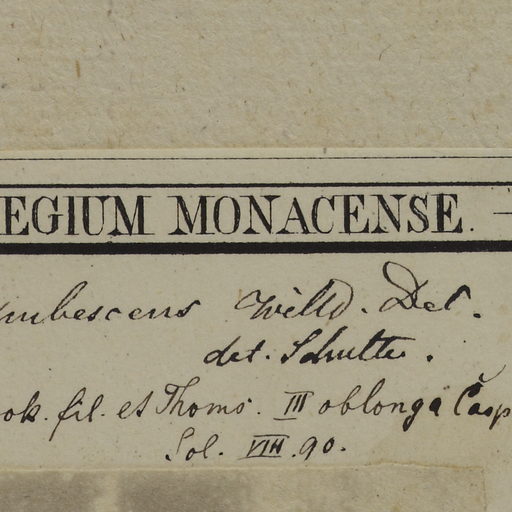 EGIUM MONACENSE.
pubescens Willd. Det.
det. Schultes.
ook. fil. et Thoms. III oblonga Casp
Sol. VIII. 90.